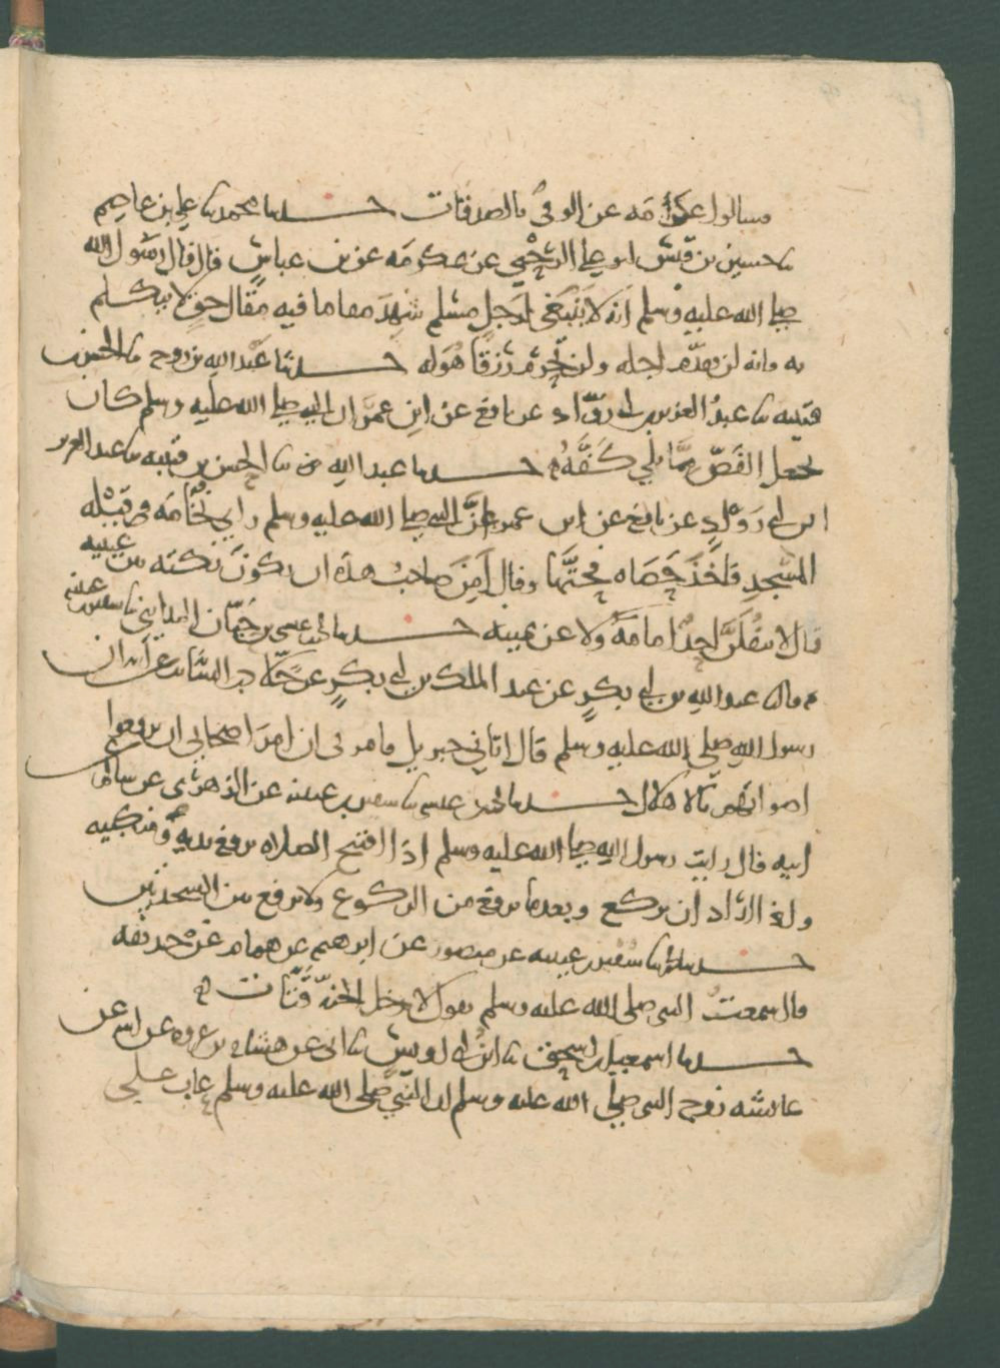 وسالوا عكرمه عن الوفى بالصدقات حدثنا محمد نا علي بن عاصم
نا حسين بن قيس ابو علي الرحبي عن عكرمه عن بن عباس قال قال رسول الله
صلى الله عليه وسلم انه لا ينبغى لرجل مسلم شهد مقاما فيه مقال حق لا يتكلم
به فانه لن يقدم اجله ولن يحرم رزقا هو له حدثنا عبد الله بن روح نا الحسن بن
قتيبه نا عبد العزيز بن ابي رواد عن نافع عن ابن عمر ان النبي صلى الله عليه وسلم كان
يجعل الفص مما يلي كفه حدثنا عبد الله نا الحسن بن قتيبه نا عبد العزيز
ابن ابي رواد عن نافع عن ابن عمر ان النبي صلى الله عليه وسلم راى نخامه في قبله
المسجد فاخذ حصاه فحتها وقال امن صاحب هذه ان يكون نكته بين عينيه
قال لا يتفلن احد امامه ولا عن يمينه حدثنا محمد بن عيسى بن حيان المدايني نا سفين بن عيينه
قال نا عبد الله بن ابي بكر عن عبد الملك بن ابي بكر عن خلاد بن السايب عن ابيه ان
رسول الله صلى الله عليه وسلم قال اتاني جبريل فامرني ان امر اصحابي ان يرفعوا
اصواتهم بالاهلال حدثنا محمد بن عيسى نا سفين بن عيينه عن الزهرى عن سالم عن
ابيه قال رايت رسول الله صلى الله عليه وسلم اذا افتتح الصلاه يرفع يديه منكبيه
واذا اراد ان يركع وبعدما يرفع من الركوع ولا يرفع بين السجدتين
حدثنا محمد نا سفين بن عيينه عن منصور عن ابرهيم عن همام عن حذيفه
قال سمعت النبى صلى الله عليه وسلم يقول لا يدخل الجنه قتات
حدثنا اسمعيل بن اسحق نا ابن ابي اويس نا ابى عن هشام بن عروه عن ابيه عن
عائشه زوج النبي صلى الله عليه وسلم ان النبي صلى الله عليه وسلم عاب على